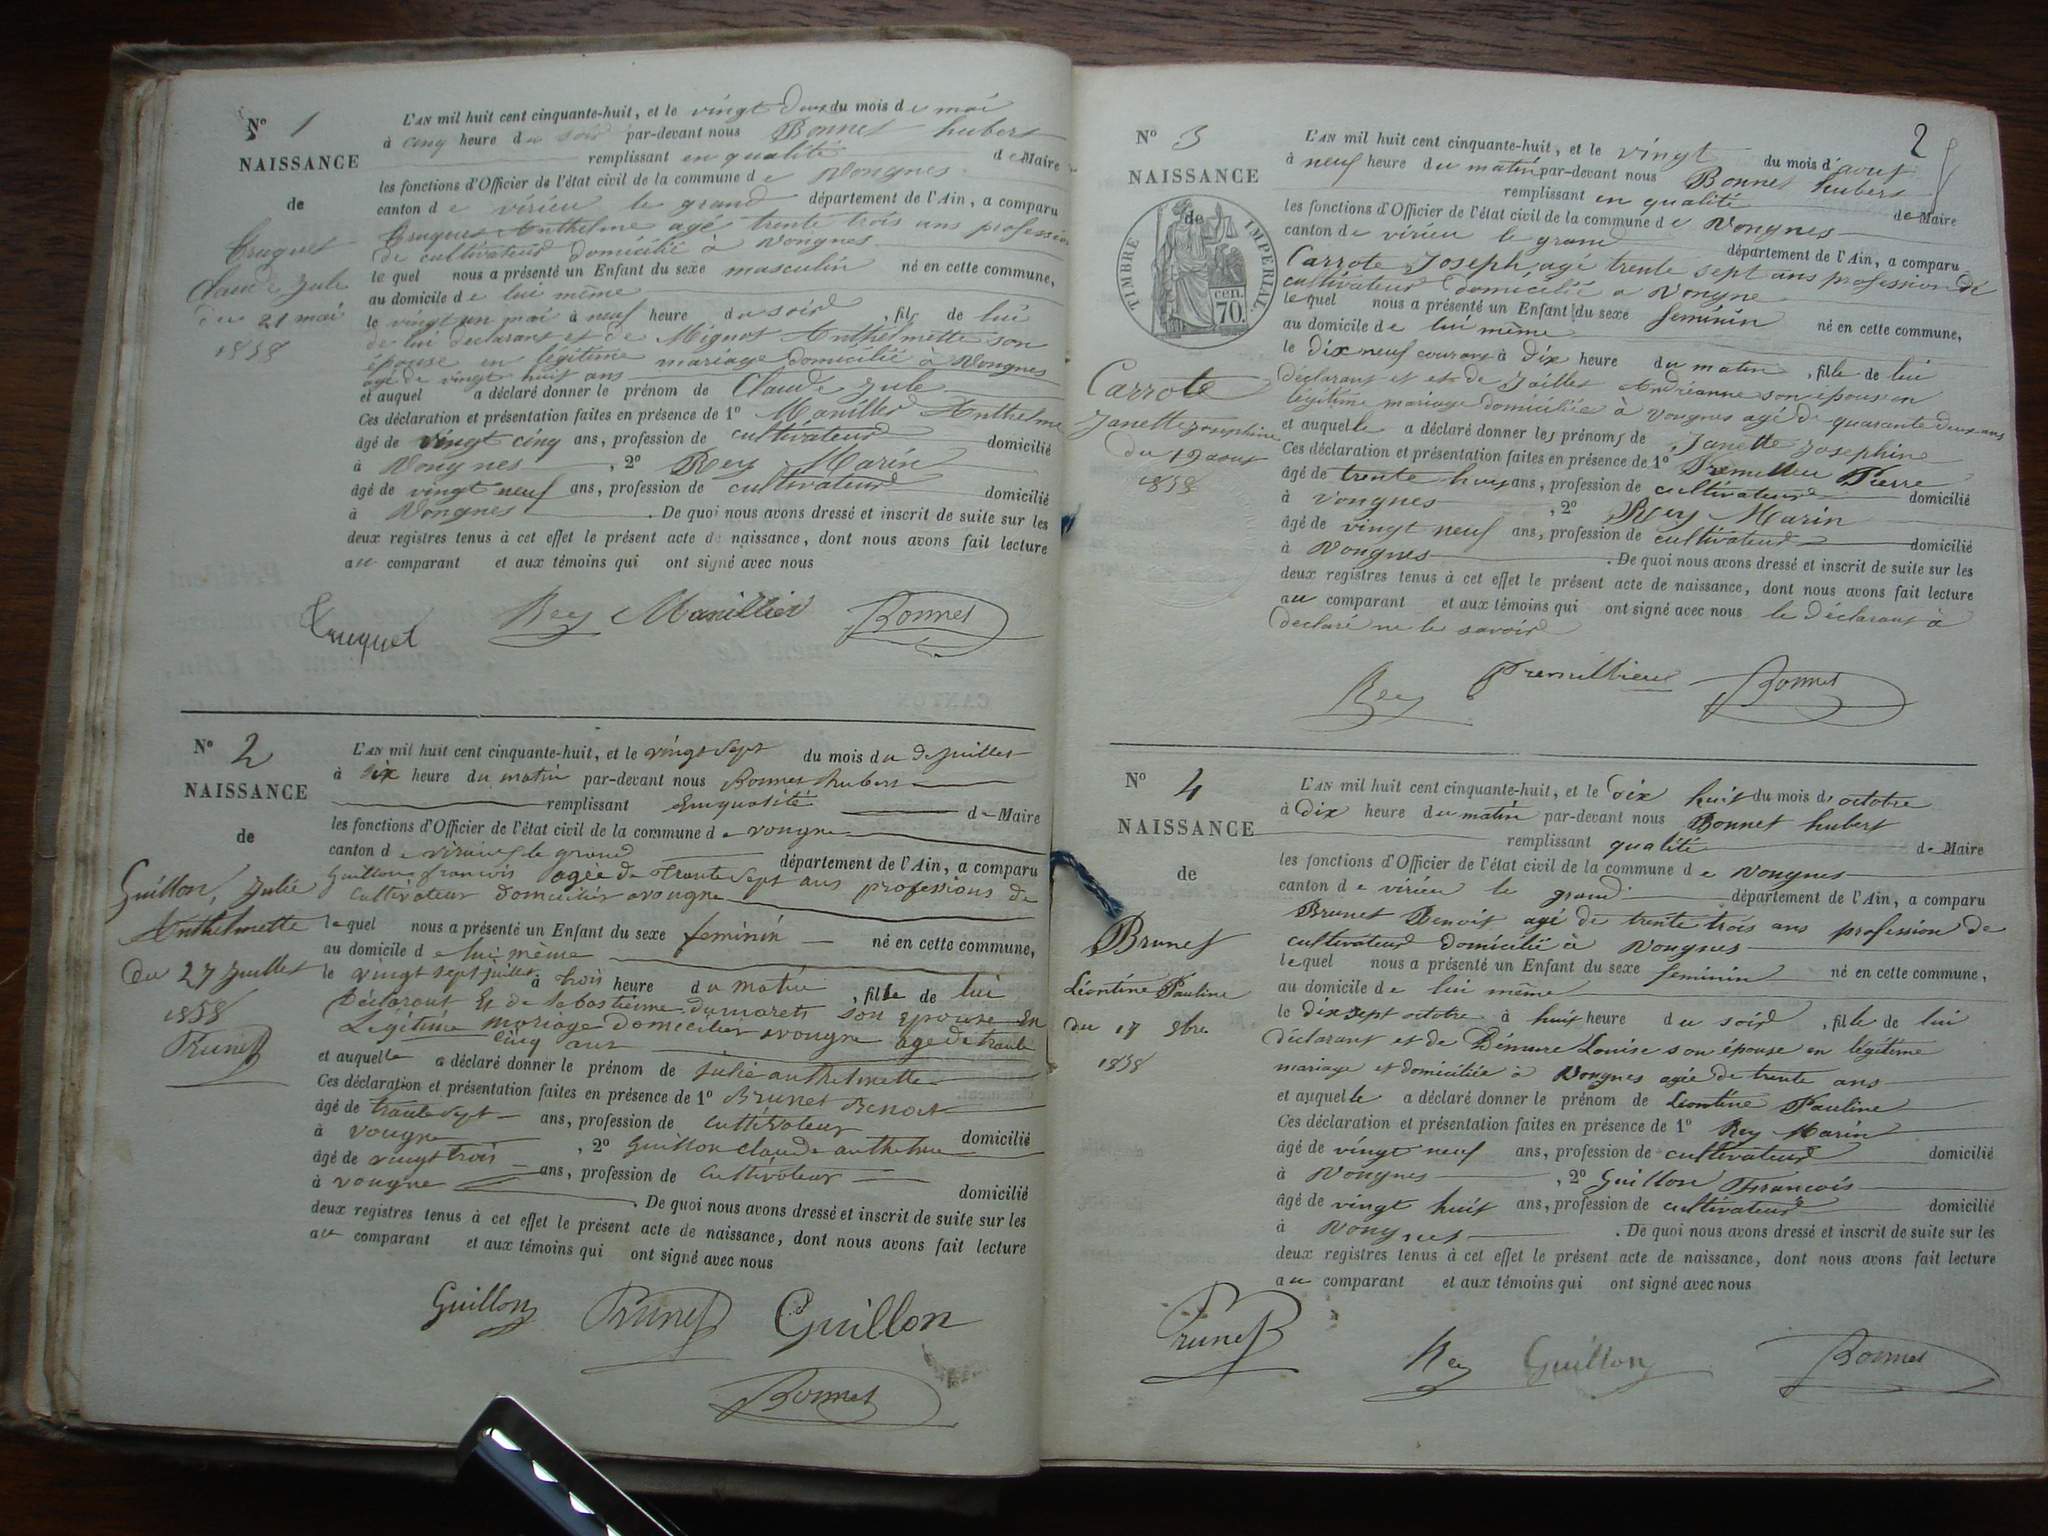 N° 1
NAISSANCE
de
Truquet
Claude Jule
du 21 mai
1858
L'AN mil huit cent cinquante-huit, et le vingt deux du mois de mai
à cinq heure du soir par-devant nous Bonnet hubert
remplissant en qualité de Maire
les fonctions d'Officier de l'état civil de la commune de Vongnes
canton de virieu le grand département de l'Ain, a comparu
Truquet Anthelme agé trente trois ans profession
de cultivateur domicilié à Vongnes
le quel nous a présenté un Enfant du sexe masculin né en cette commune,
au domicile de lui même
le vingt un mai à neuf heure du soir, fils de lui
de lui declarant et de Miguet Anthelmette son
épouse en légitime mariage domicilié à Vongnes
agé de vingt huit ans
et auquel a déclaré donner le prénom de Claude Jule
Ces déclaration et présentation faites en présence de 1° Manillier Anthelme
âgé de vingt cinq ans, profession de cultivateur domicilié
à Vongnes, 2° Rey Marin
âgé de vingt neuf ans, profession de cultivateur domicilié
à Vongnes. De quoi nous avons dressé et inscrit de suite sur les
deux registres tenus à cet effet le présent acte de naissance, dont nous avons fait lecture
au comparant et aux témoins qui ont signé avec nous
Truquet Rey Manillier Bonnet
N° 2
NAISSANCE
de
Guillon, Julie
Anthelmette
du 27 Juillet
1858
Brunet
L'AN mil huit cent cinquante-huit, et le vingt sept du mois du de juillet
à dix heure du matin par-devant nous Bonnet hubert
remplissant enquasité de Maire
les fonctions d'Officier de l'état civil de la commune de vongne
canton de virieu le grand département de l'Ain, a comparu
Guillon francois agée de trante sept ans professions de
cultivateur domicilier avongne
le quel nous a présenté un Enfant du sexe feminin né en cette commune,
au domicile de lui même
le vingt sept juillet à trois heure du matin, fille de lui
Déclarant Et de Sebastienne dumarets son Epouse En
Légitime mariage Domicilier avongne age de trante
cinq ans
et auquelle a déclaré donner le prénom de julie anthelmette
Ces déclaration et présentation faites en présence de 1° Brunet Benoit
âgé de trante sept ans, profession de cultivateur domicilié
à vongne, 2° Guillon claude anthelme
âgé de vingt trois ans, profession de cultivateur domicilié
à vongne. De quoi nous avons dressé et inscrit de suite sur les
deux registres tenus à cet effet le présent acte de naissance, dont nous avons fait lecture
au comparant et aux témoins qui ont signé avec nous
Guillon Brunet Guillon
Bonnet
2
N° 3
NAISSANCE
de
TIMBRE IMPERIAL
70 cen.
Carrote
Janette Josephine
du 19 aout
1858
L'AN mil huit cent cinquante-huit, et le vingt du mois d'aout
à neuf heure du matin par-devant nous Bonnet hubert
remplissant en qualité de Maire
les fonctions d'Officier de l'état civil de la commune de Vongnes
canton de virieu le grand département de l'Ain, a comparu
Carrote Joseph, agé trente sept ans profession de
cultivateur domicilié a Vongne
le quel nous a présenté un Enfant du sexe feminin né en cette commune,
au domicile de lui même
le dix neuf courant à dix heure du matin, fille de lui
déclarant et et de Jaillet Andréanne son épouse en
légitime mariage domiciliée à vongnes agé de quarante deux ans
et auquelle a déclaré donner les prénoms de Janette Josephine
Ces déclaration et présentation faites en présence de 1° Premillieu Pierre
âgé de trente huit ans, profession de cultivateur domicilié
à Vongnes, 2° Rey Marin
âgé de vingt neuf ans, profession de cultivateur domicilié
à Vongnes. De quoi nous avons dressé et inscrit de suite sur les
deux registres tenus à cet effet le présent acte de naissance, dont nous avons fait lecture
au comparant et aux témoins qui ont signé avec nous le déclarant à
déclaré ne le savoir
Rey Premillieux Bonnet
N° 4
NAISSANCE
de
Brunet
Léontine Pauline
du 17 8bre
1858
L'AN mil huit cent cinquante-huit, et le dix huit du mois d'octobre
à dix heure du matin par-devant nous Bonnet hubert
remplissant qualité de Maire
les fonctions d'Officier de l'état civil de la commune de Vongnes
canton de virieu le grand département de l'Ain, a comparu
Brunet Benoit agé de trente trois ans profession de
cultivateur domicilié à Vongnes
le quel nous a présenté un Enfant du sexe feminin né en cette commune,
au domicile de lui même
le dix sept octobre à huit heure du soir, fille de lui
déclarant et de Démure Louise son épouse en légitime
mariage et domiciliée à Vongnes agée de trente ans
et auquelle a déclaré donner le prénom de Léontine Pauline
Ces déclaration et présentation faites en présence de 1° Rey Marin
âgé de vingt neuf ans, profession de cultivateur domicilié
à Vongnes, 2° Guillon François
âgé de vingt huit ans, profession de cultivateur domicilié
à Vongnes. De quoi nous avons dressé et inscrit de suite sur les
deux registres tenus à cet effet le présent acte de naissance, dont nous avons fait lecture
au comparant et aux témoins qui ont signé avec nous
Brunet Rey Guillon Bonnet